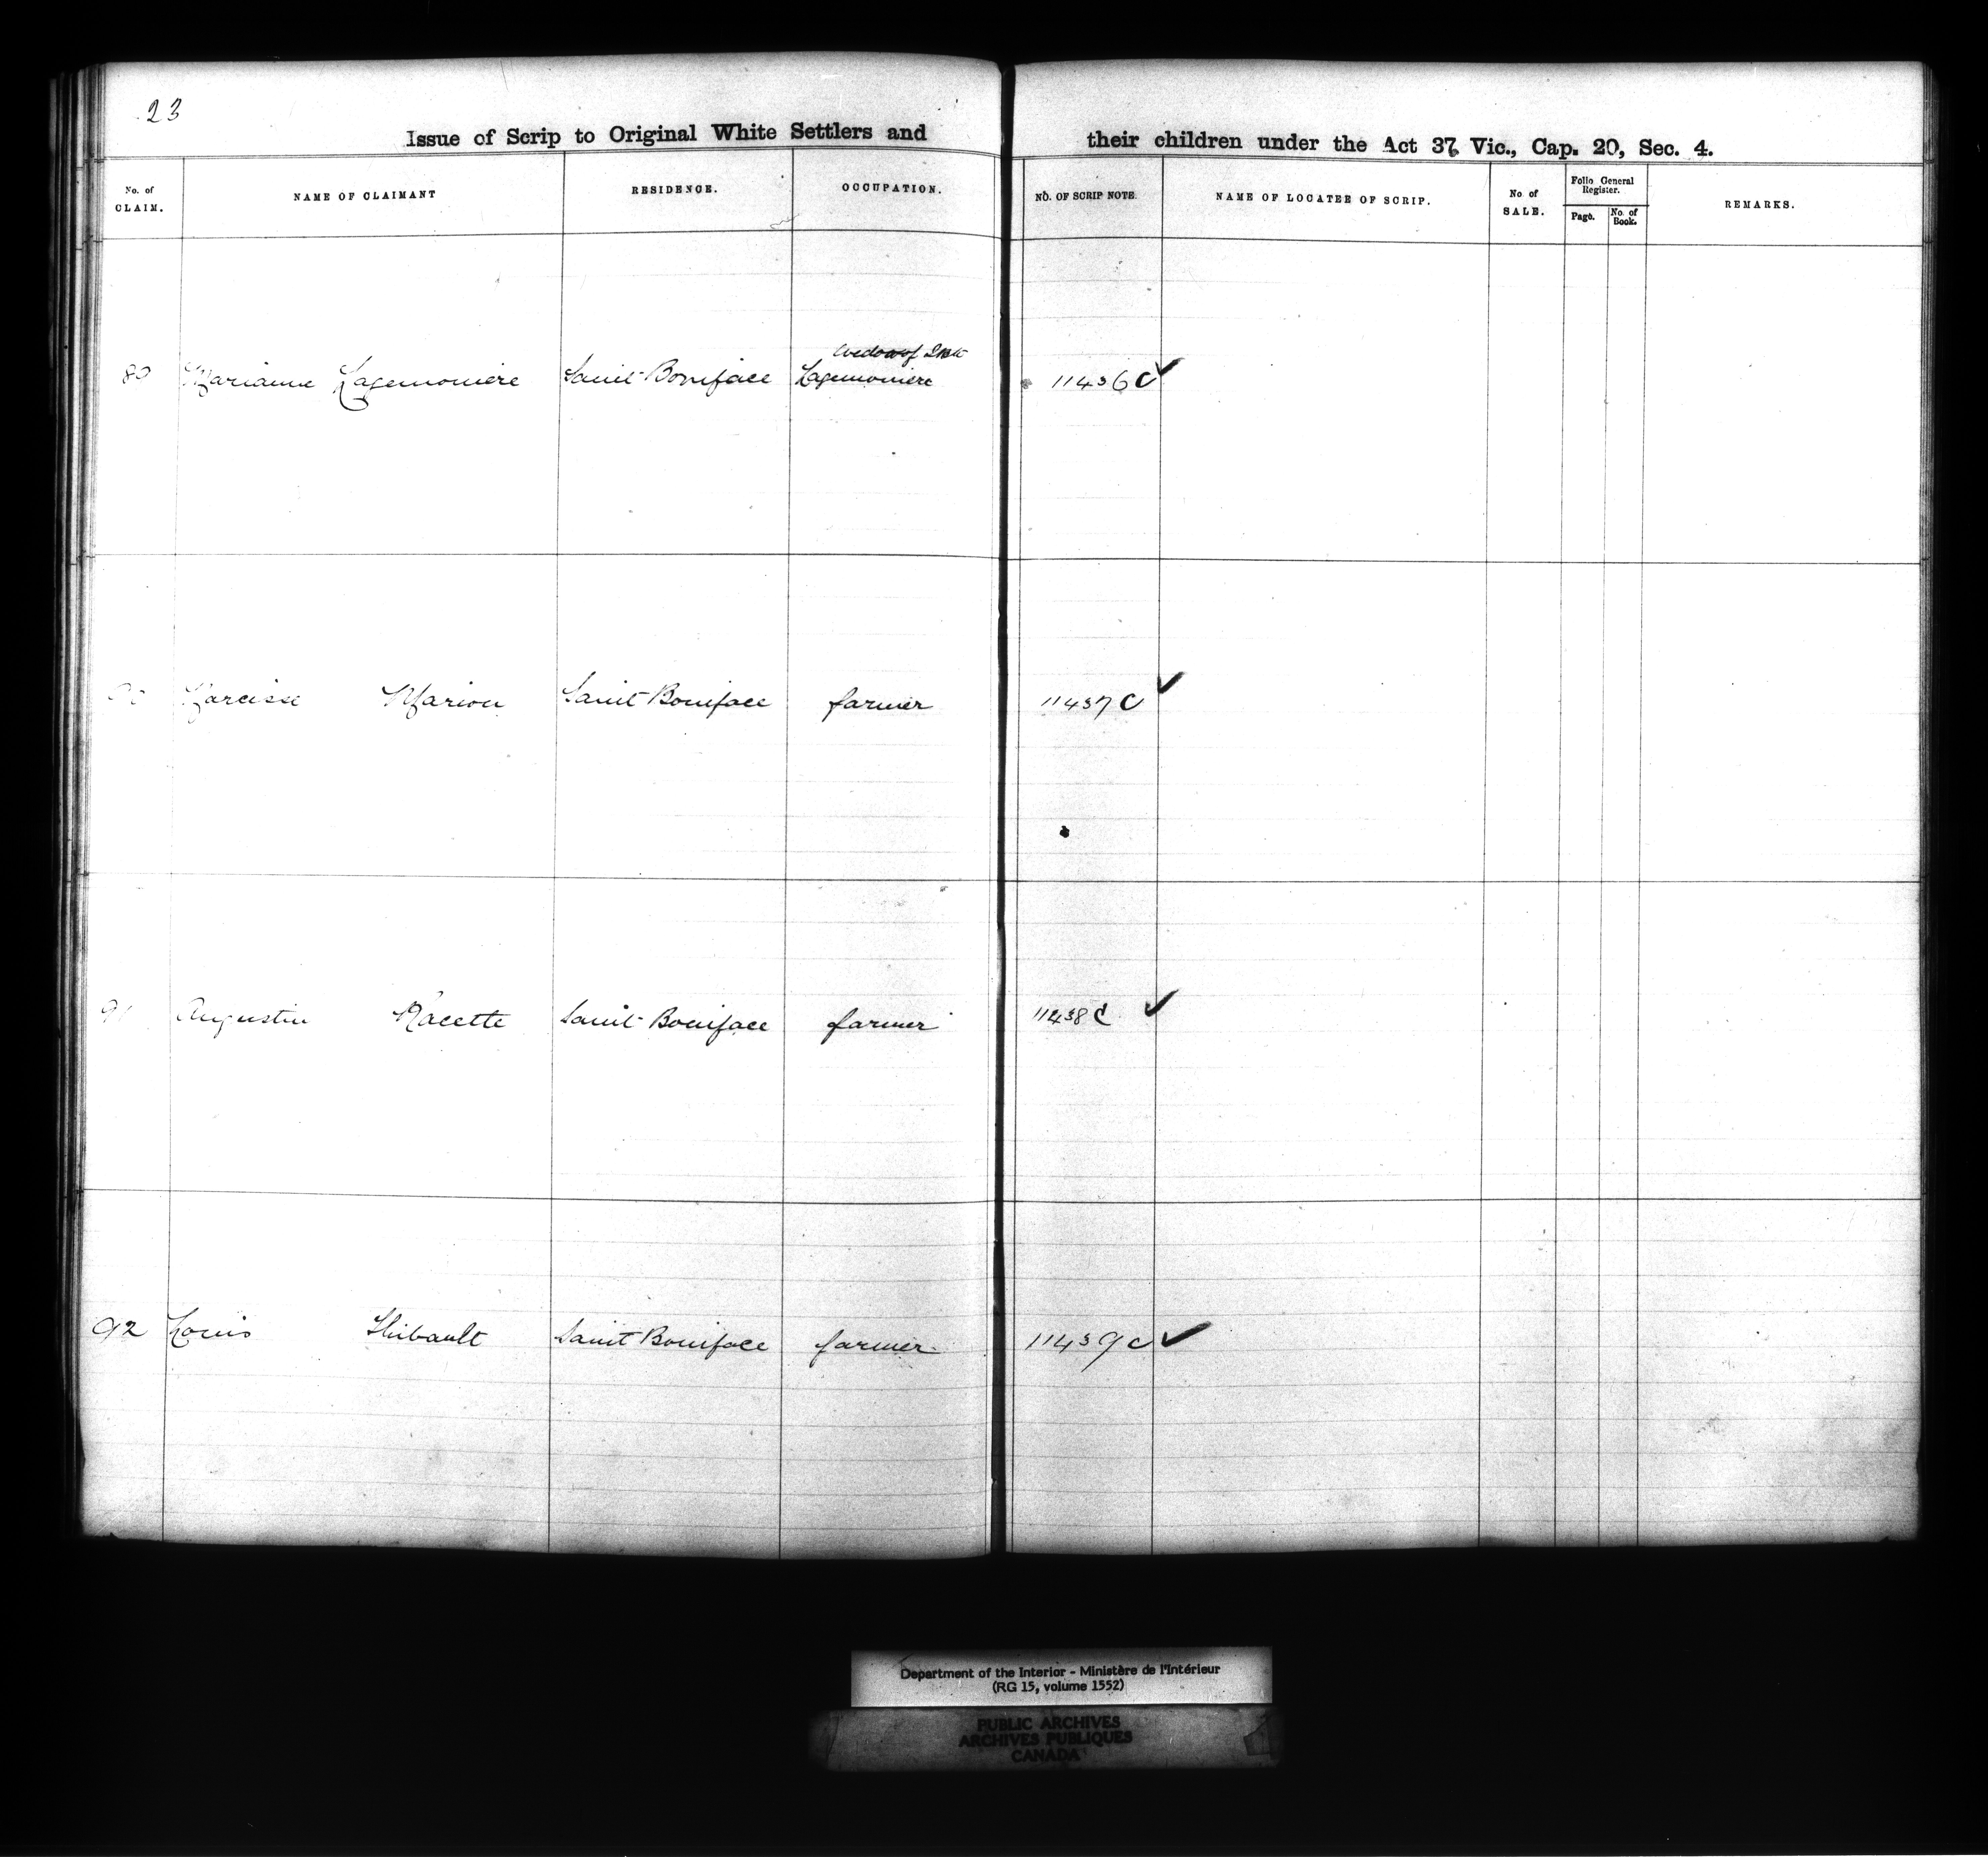 23
Issue of Scrip to Original White Settlers and their children under the Act 37 Vic., Cap. 20, Sec. 4.
No. of CLAIM. NAME OF CLAIMANT RESIDENCE. OCCUPATION. NO. OF SCRIP NOTE. NAME OF LOCATEE OF SCRIP. No. of SALE. Folio General Register. Page. No. of Book. REMARKS.
widow of
80 Marianne Lagemoniere Saint Boniface Lagemoniere 11436 C ✓
Narcisse Marion Saint Boniface farmer 11437 C ✓
91 Augustin Racette Saint Boniface farmer 11438 C ✓
92 Louis Thibault Saint Boniface farmer 11439 C ✓
Department of the Interior - Ministère de l'Intérieur
(RG 15, volume 1552)
PUBLIC ARCHIVES
ARCHIVES PUBLIQUES
CANADA